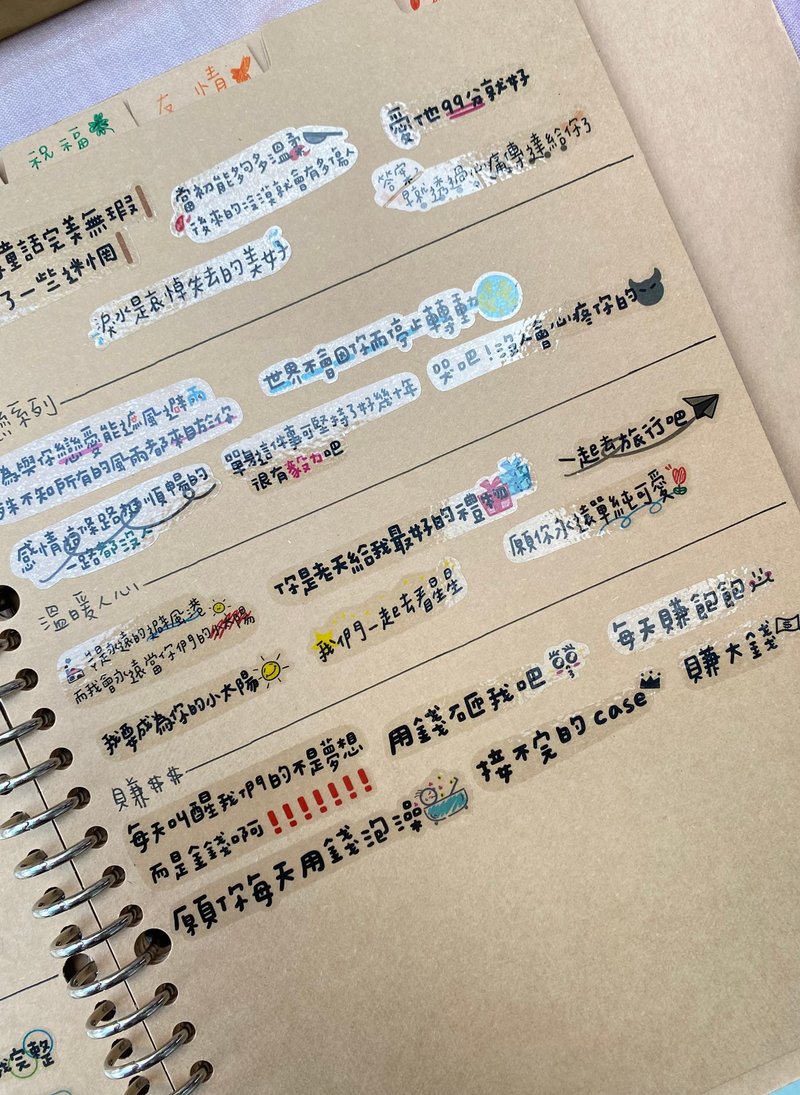 祝福
友情
愛他99分就好
當初能夠多溫柔
後來的沒漠就會有多傷人
答案
早就透過心痛傳達給你了
童話完美無瑕
了一些迷惘
淚水是哀悼失去的美好
世界不會因你而停止轉動
哭吧！沒人會心疼你的
系列
為與你戀愛能遮風避雨
殊不知所有的風雨都來自於你
單身這件事可堅持了好幾十年
很有毅力吧
一起去旅行吧
感情這條路 順暢的
一路都沒人
你是老天給我最好的禮物
願你永遠單純可愛
溫暖人心
是永遠的避風港
而我會永遠當你們的小太陽
我們一起去看星星
每天賺飽飽
我要成為你的小太陽
用錢砸我吧
賺大錢
賺$$
每天叫醒我們的不是夢想
而是金錢啊!!!!!!!
接不完的case
願你每天用錢泡澡
完整